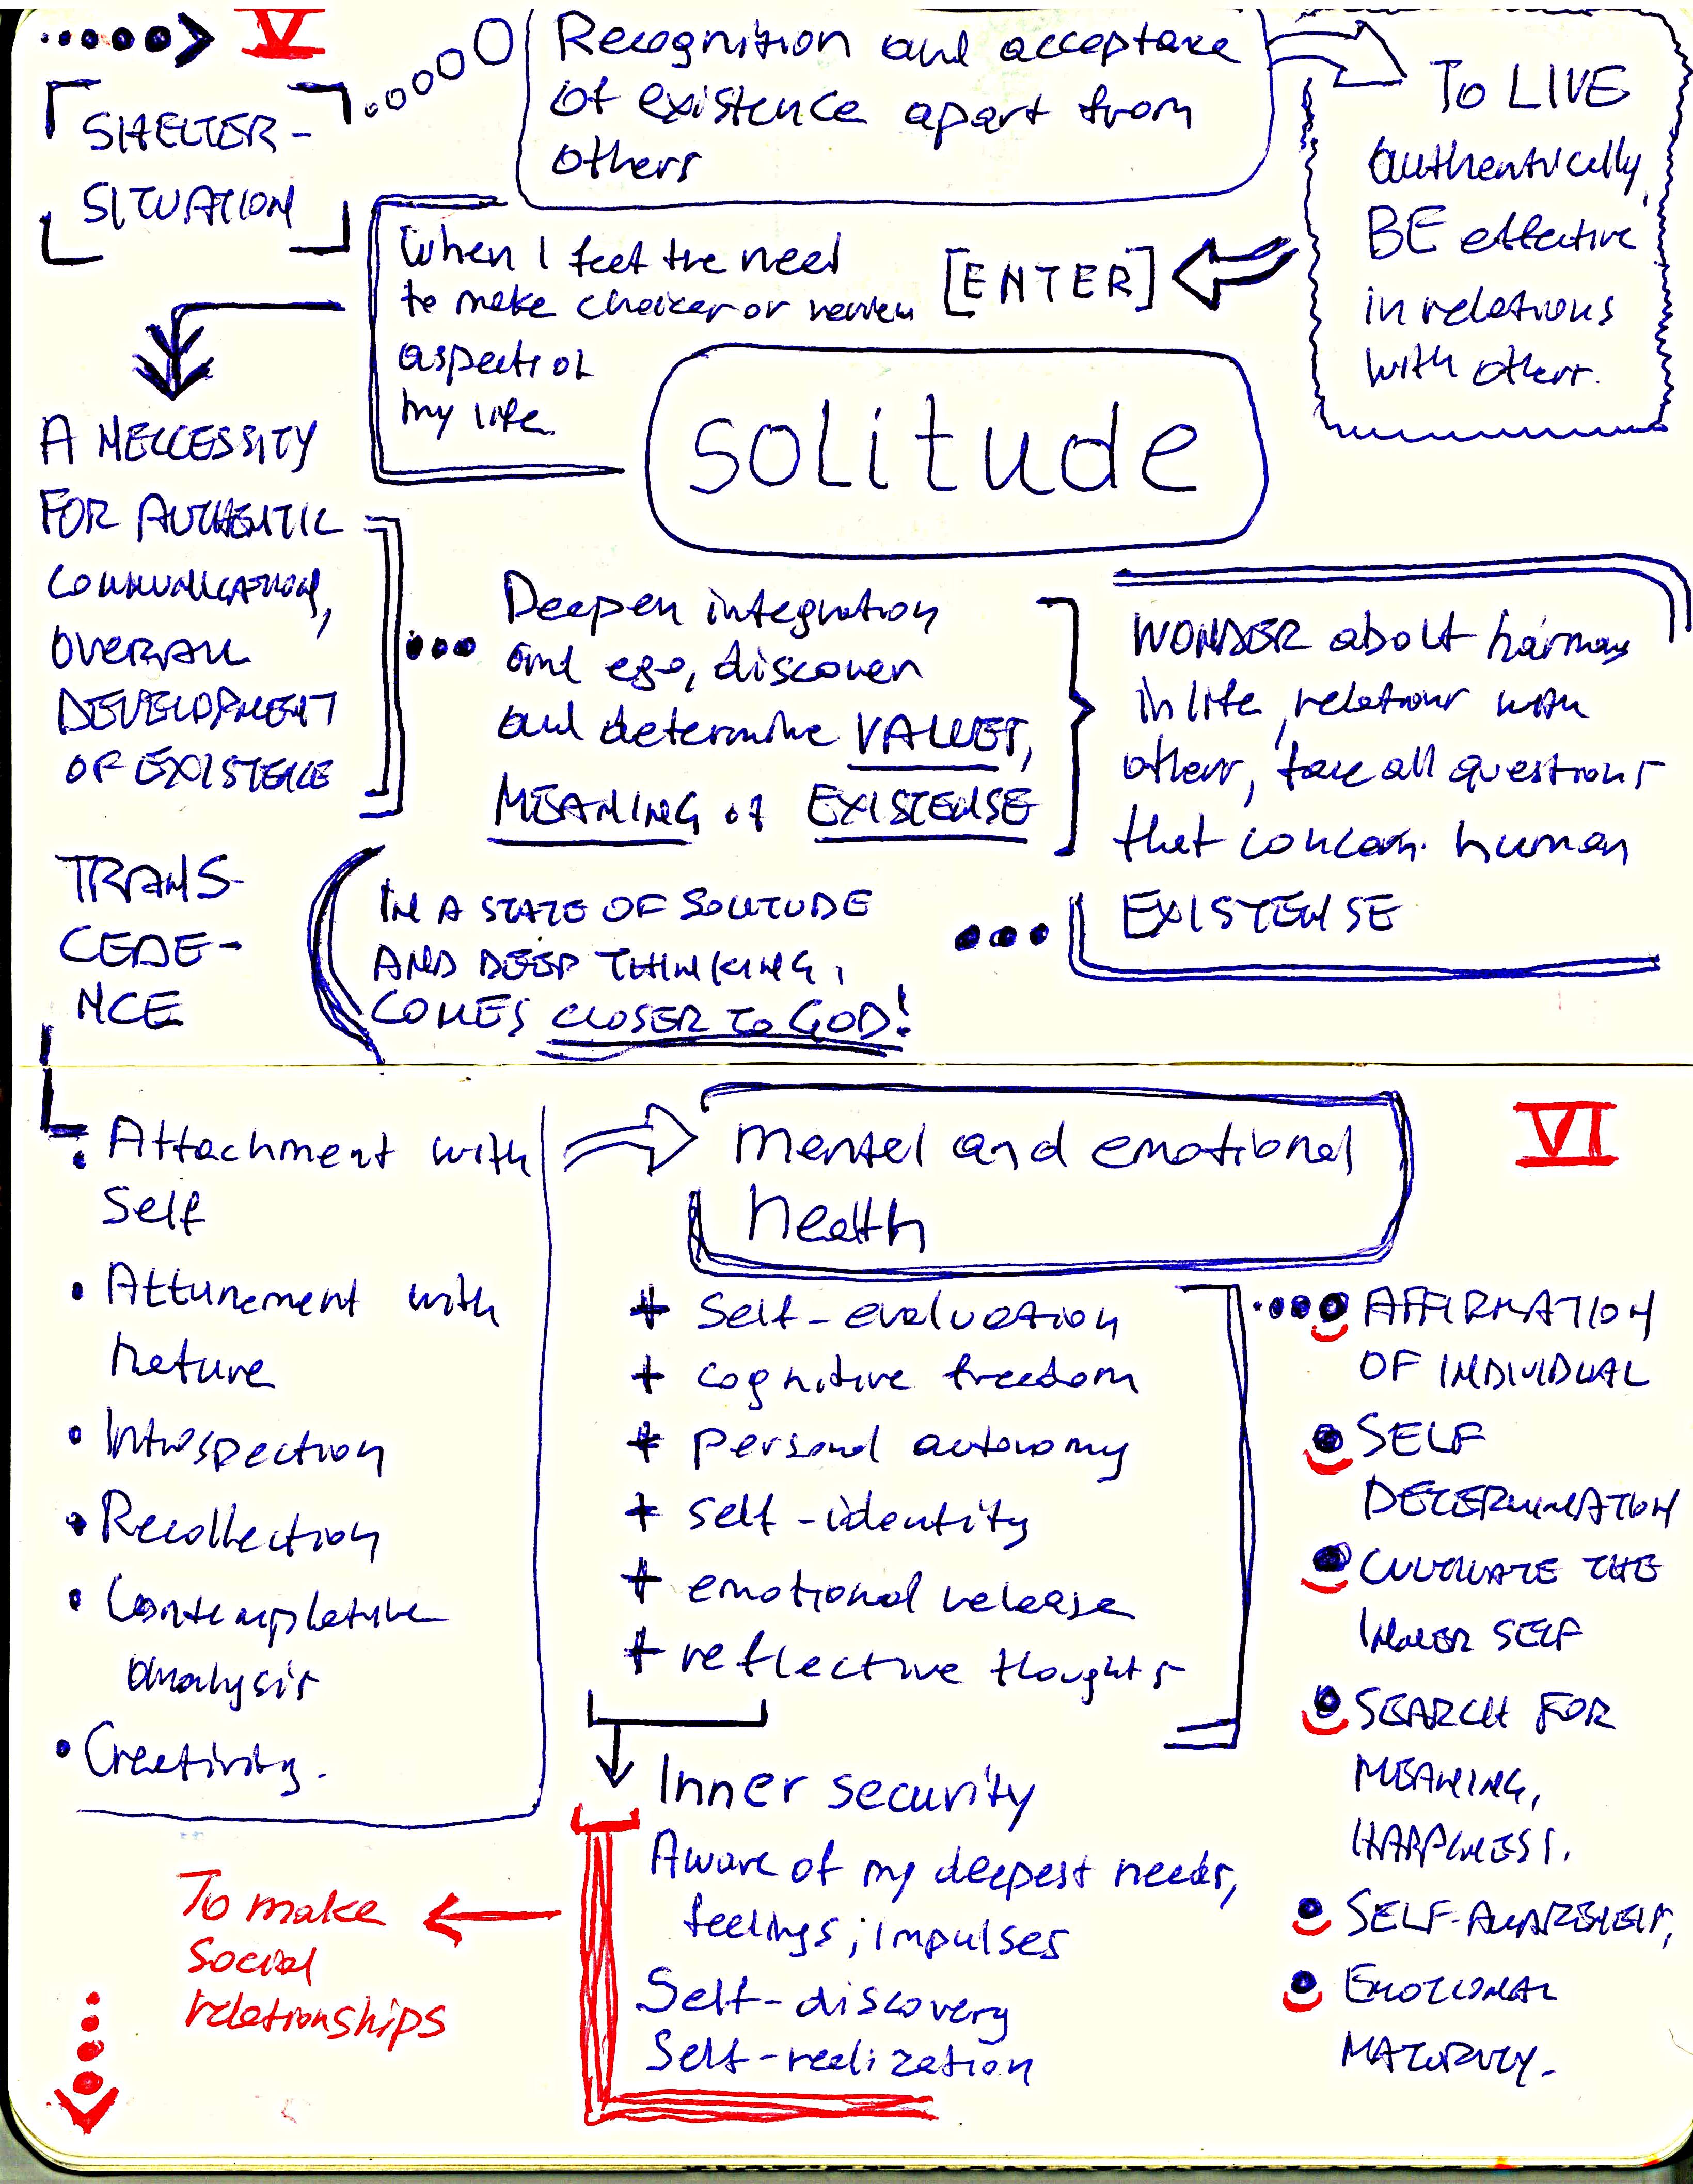 V
SHELTER-
SITUATION
Recognition and acceptance
of existence apart from
others
TO LIVE
authentically,
BE effective
in relations
with others.
[ENTER]
When I feel the need
to make choices or review
aspects of
my life.
solitude
A NECCESSITY
FOR AUTHENTIC
COMMUNICATION,
OVERALL
DEVELOPMENT
OF EXISTENCE
Deepen integration
and ego, discover
and determine VALUES,
MEANING of EXISTENSE
WONDER about harmony
in life, relations with
others, face all questions
that concern human
EXISTENSE
IN A STATE OF SOLITUDE
AND DEEP THINKING,
COMES CLOSER TO GOD!
TRANS-
CEDE-
NCE
• Attachment with
Self
• Attunement with
Nature
• Introspection
• Recollection
• Contemplative
analysis
• Creativity.
mental and emotional
health
+ Self-evaluation
+ cognitive freedom
+ personal autonomy
+ self-identity
+ emotional release
+ reflective thoughts
VI
• AFFIRMATION
OF INDIVIDUAL
• SELF
DETERMINATION
• CULTIVATE THE
INNER SELF
• SEARCH FOR
MEANING,
HAPPINESS,
• SELF-AWARENESS,
• EMOTIONAL
MATURITY.
Inner security
Aware of my deepest needs,
feelings, impulses
Self-discovery
Self-realization
To make
social
relationships